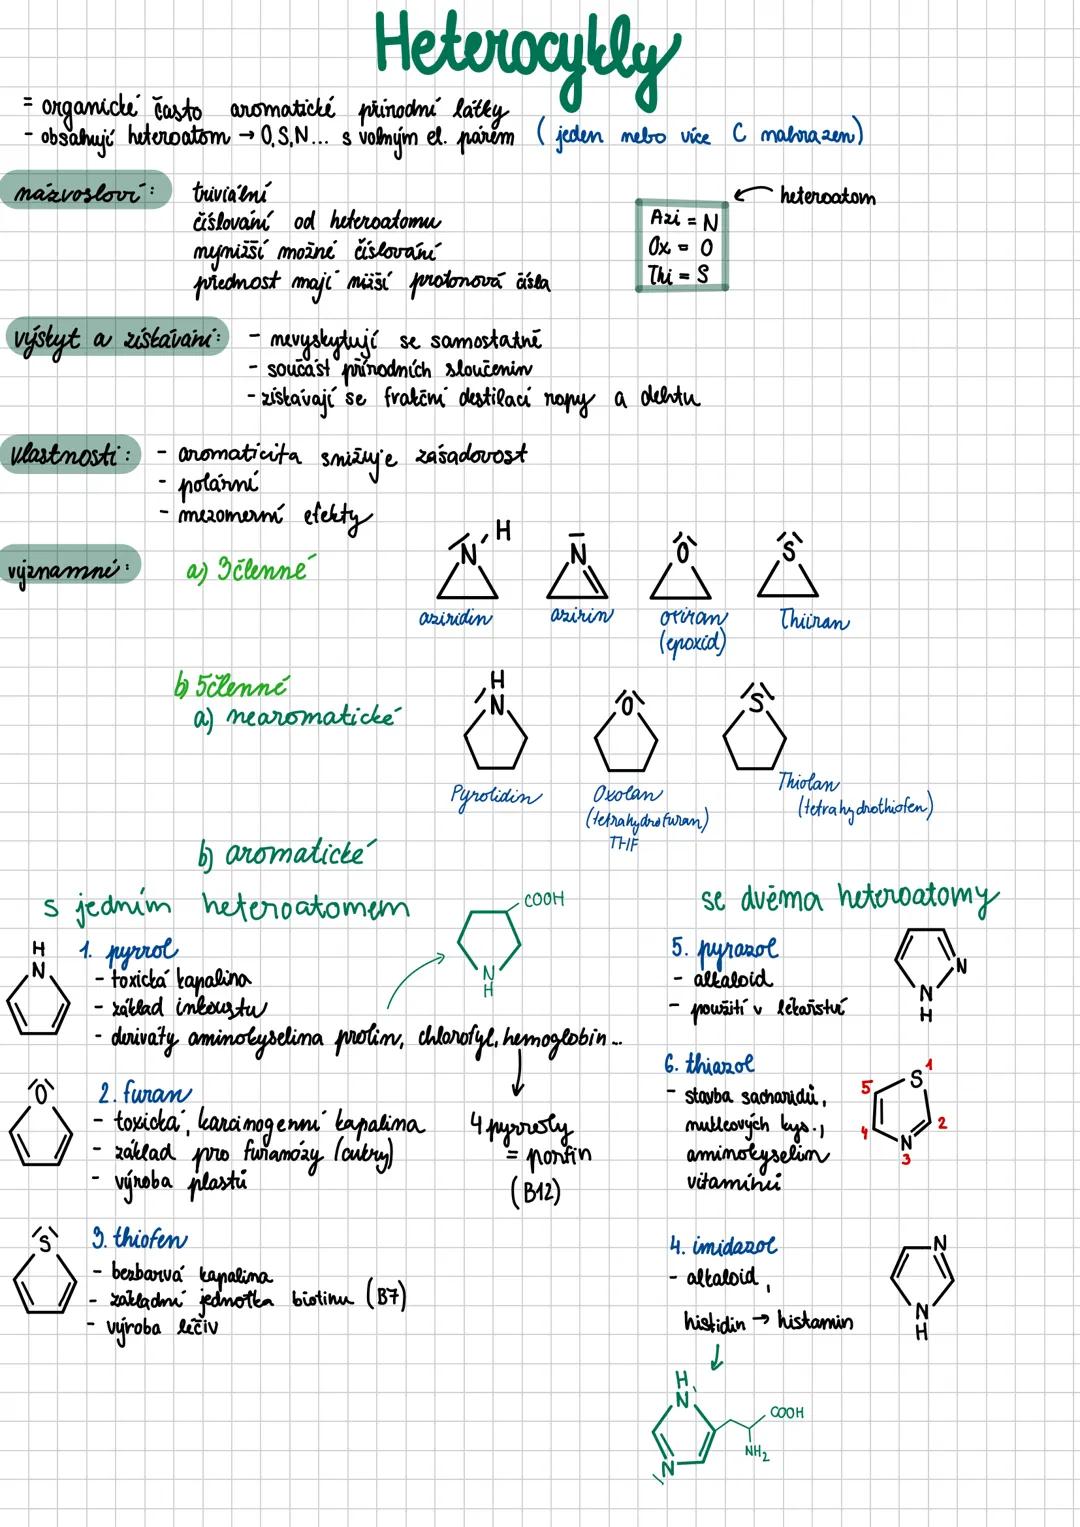 Heterocykly
= organické často aromatické přírodní látky
- obsahují heteroatom → O,S,N... s volným el. párem (jeden nebo více C nahrazen)
názvosloví:
triviální
číslování od heteroatomu
nejnižší možné číslování
přednost mají nižší protonová čísla
heteroatom
Azi = N
Ox = O
Thi = S
výskyt a získávání:
- nevyskytují se samostatně
- součást přírodních sloučenin
- získávají se frakční destilací ropy a dehtu
vlastnosti:
- aromaticita snižuje zásadovost
- polární
- mezomerní efekty
významné:
a) 3členné
N H
N
O
S
aziridin
azirin
oxiran
(epoxid)
Thiiran
b) 5členné
a) nearomatické
H
N
O
S
Pyrolidin
Oxolan
(tetrahydrofuran)
THF
Thiolan
(tetrahydrothiofen)
b) aromatické
s jedním heteroatomem
COOH
N
H
H
N
1. pyrrol
- toxická kapalina
- základ inkoustu
- deriváty aminokyselina prolin, chlorofyl, hemoglobin...
4 pyrroly
= porfin
(B12)
O
2. furan
- toxická, karcinogenní kapalina
- základ pro furanózy (cukry)
- výroba plastů
S
3. thiofen
- bezbarvá kapalina
- základní jednotka biotinu (B7)
- výroba léčiv
se dvěma heteroatomy
5. pyrazol
- alkaloid
- použití v lékařství
N
N
H
6. thiazol
- stavba sacharidů,
nukleových kys.,
aminokyselin
vitamínů
S 1
5
2
4
N
3
4. imidazol
- alkaloid,
histidin → histamin
N
N
H
H
N
N
COOH
NH2